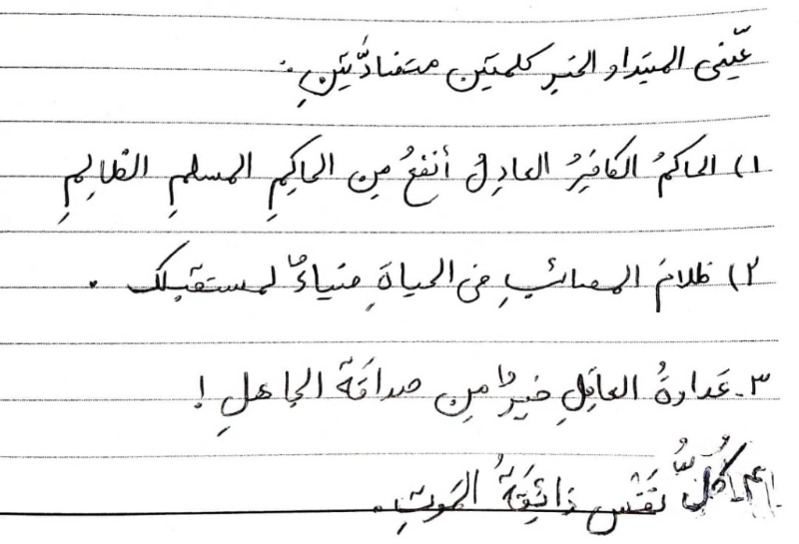 عَيِّنی المبتدا و الخبر کلمتَین متضادَّتَینِ:
١) الحاکمُ الکافِرُ العادِلُ أنفعُ مِن الحاکِمِ المسلمِ الظالِمِ
٢) ظلامُ المصائبِ فی الحیاةِ ضیاءٌ لمستقبلک .
٣- عَداوةُ العاقِلِ خیرٌ مِن صداقَةِ الجاهلِ !
۴- کُلُّ نَفْسٍ ذائِقَةُ المَوتِ.